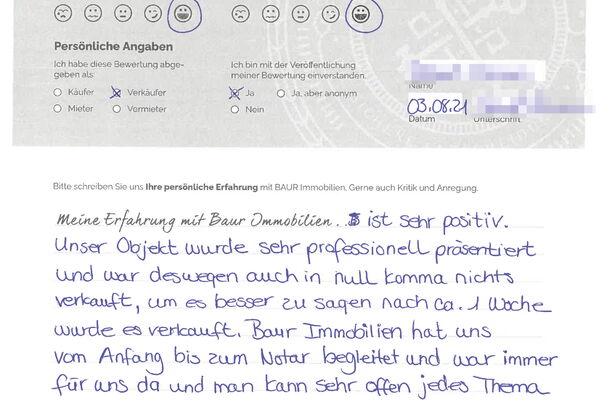 Persönliche Angaben
Ich habe diese Bewertung abge-
geben als:
Käufer
Verkäufer
Mieter
Vermieter
Ich bin mit der Veröffentlichung
meiner Bewertung einverstanden.
Ja
Ja, aber anonym
Nein
Name
03.08.21
Datum
Unterschrift
Bitte schreiben Sie uns Ihre persönliche Erfahrung mit BAUR Immobilien. Gerne auch Kritik und Anregung.
Meine Erfahrung mit Baur Immobilien... ist sehr positiv.
Unser Objekt wurde sehr professionell präsentiert
und war deswegen auch in null komma nichts
verkauft, um es besser zu sagen nach ca. 1 Woche
wurde es verkauft. Baur Immobilien hat uns
vom Anfang bis zum Notar begleitet und war immer
für uns da und man kann sehr offen jedes Thema